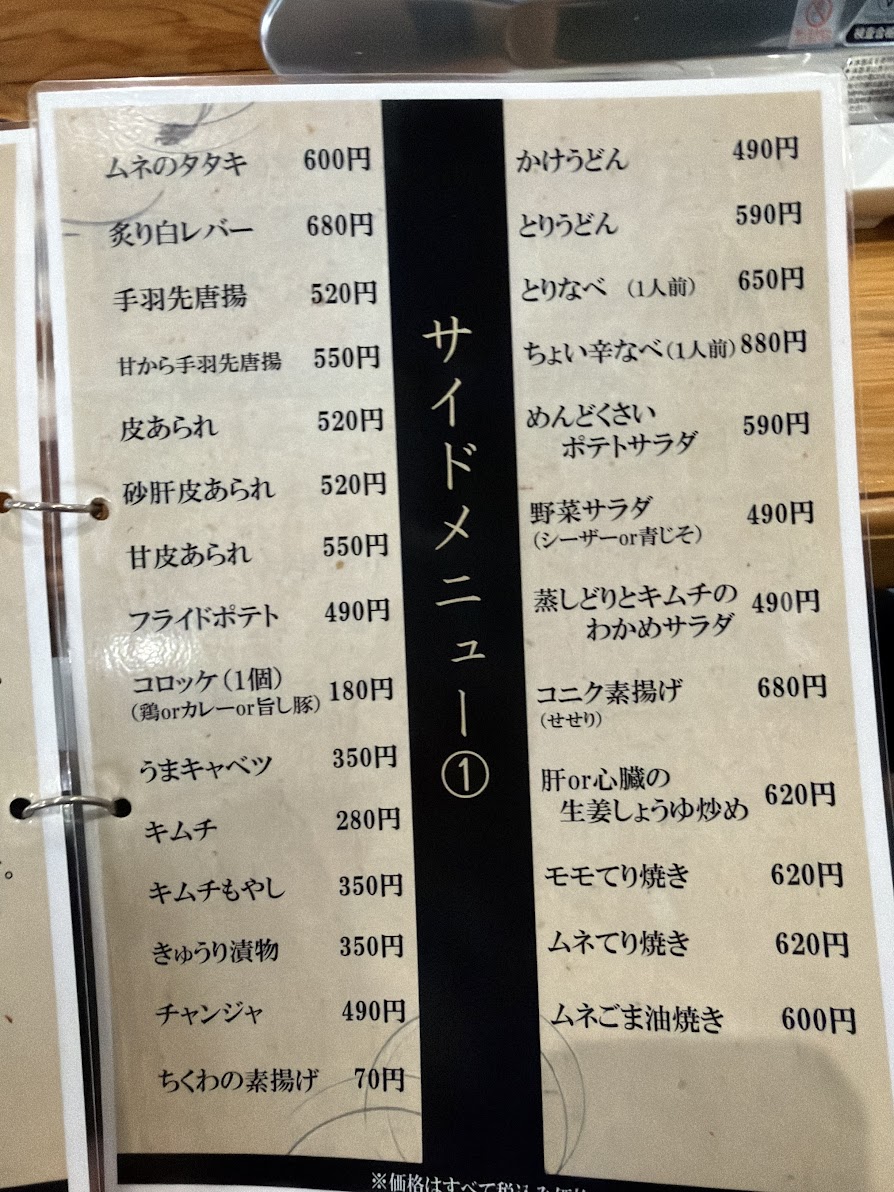 ムネのタタキ 600円
炙り白レバー 680円
手羽先唐揚 520円
甘から手羽先唐揚 550円
皮あられ 520円
砂肝皮あられ 520円
甘皮あられ 550円
フライドポテト 490円
コロッケ(1個) 180円
(鶏orカレーor旨し豚)
うまキャベツ 350円
キムチ 280円
キムチもやし 350円
きゅうり漬物 350円
チャンジャ 490円
ちくわの素揚げ 70円
サイドメニュー①
かけうどん 490円
とりうどん 590円
とりなべ (1人前) 650円
ちょい辛なべ(1人前) 880円
めんどくさい
ポテトサラダ 590円
野菜サラダ 490円
(シーザーor青じそ)
蒸しどりとキムチの
わかめサラダ 490円
コニク素揚げ 680円
(せせり)
肝or心臓の
生姜しょうゆ炒め 620円
モモてり焼き 620円
ムネてり焼き 620円
ムネごま油焼き 600円
※価格はすべて税込み価格